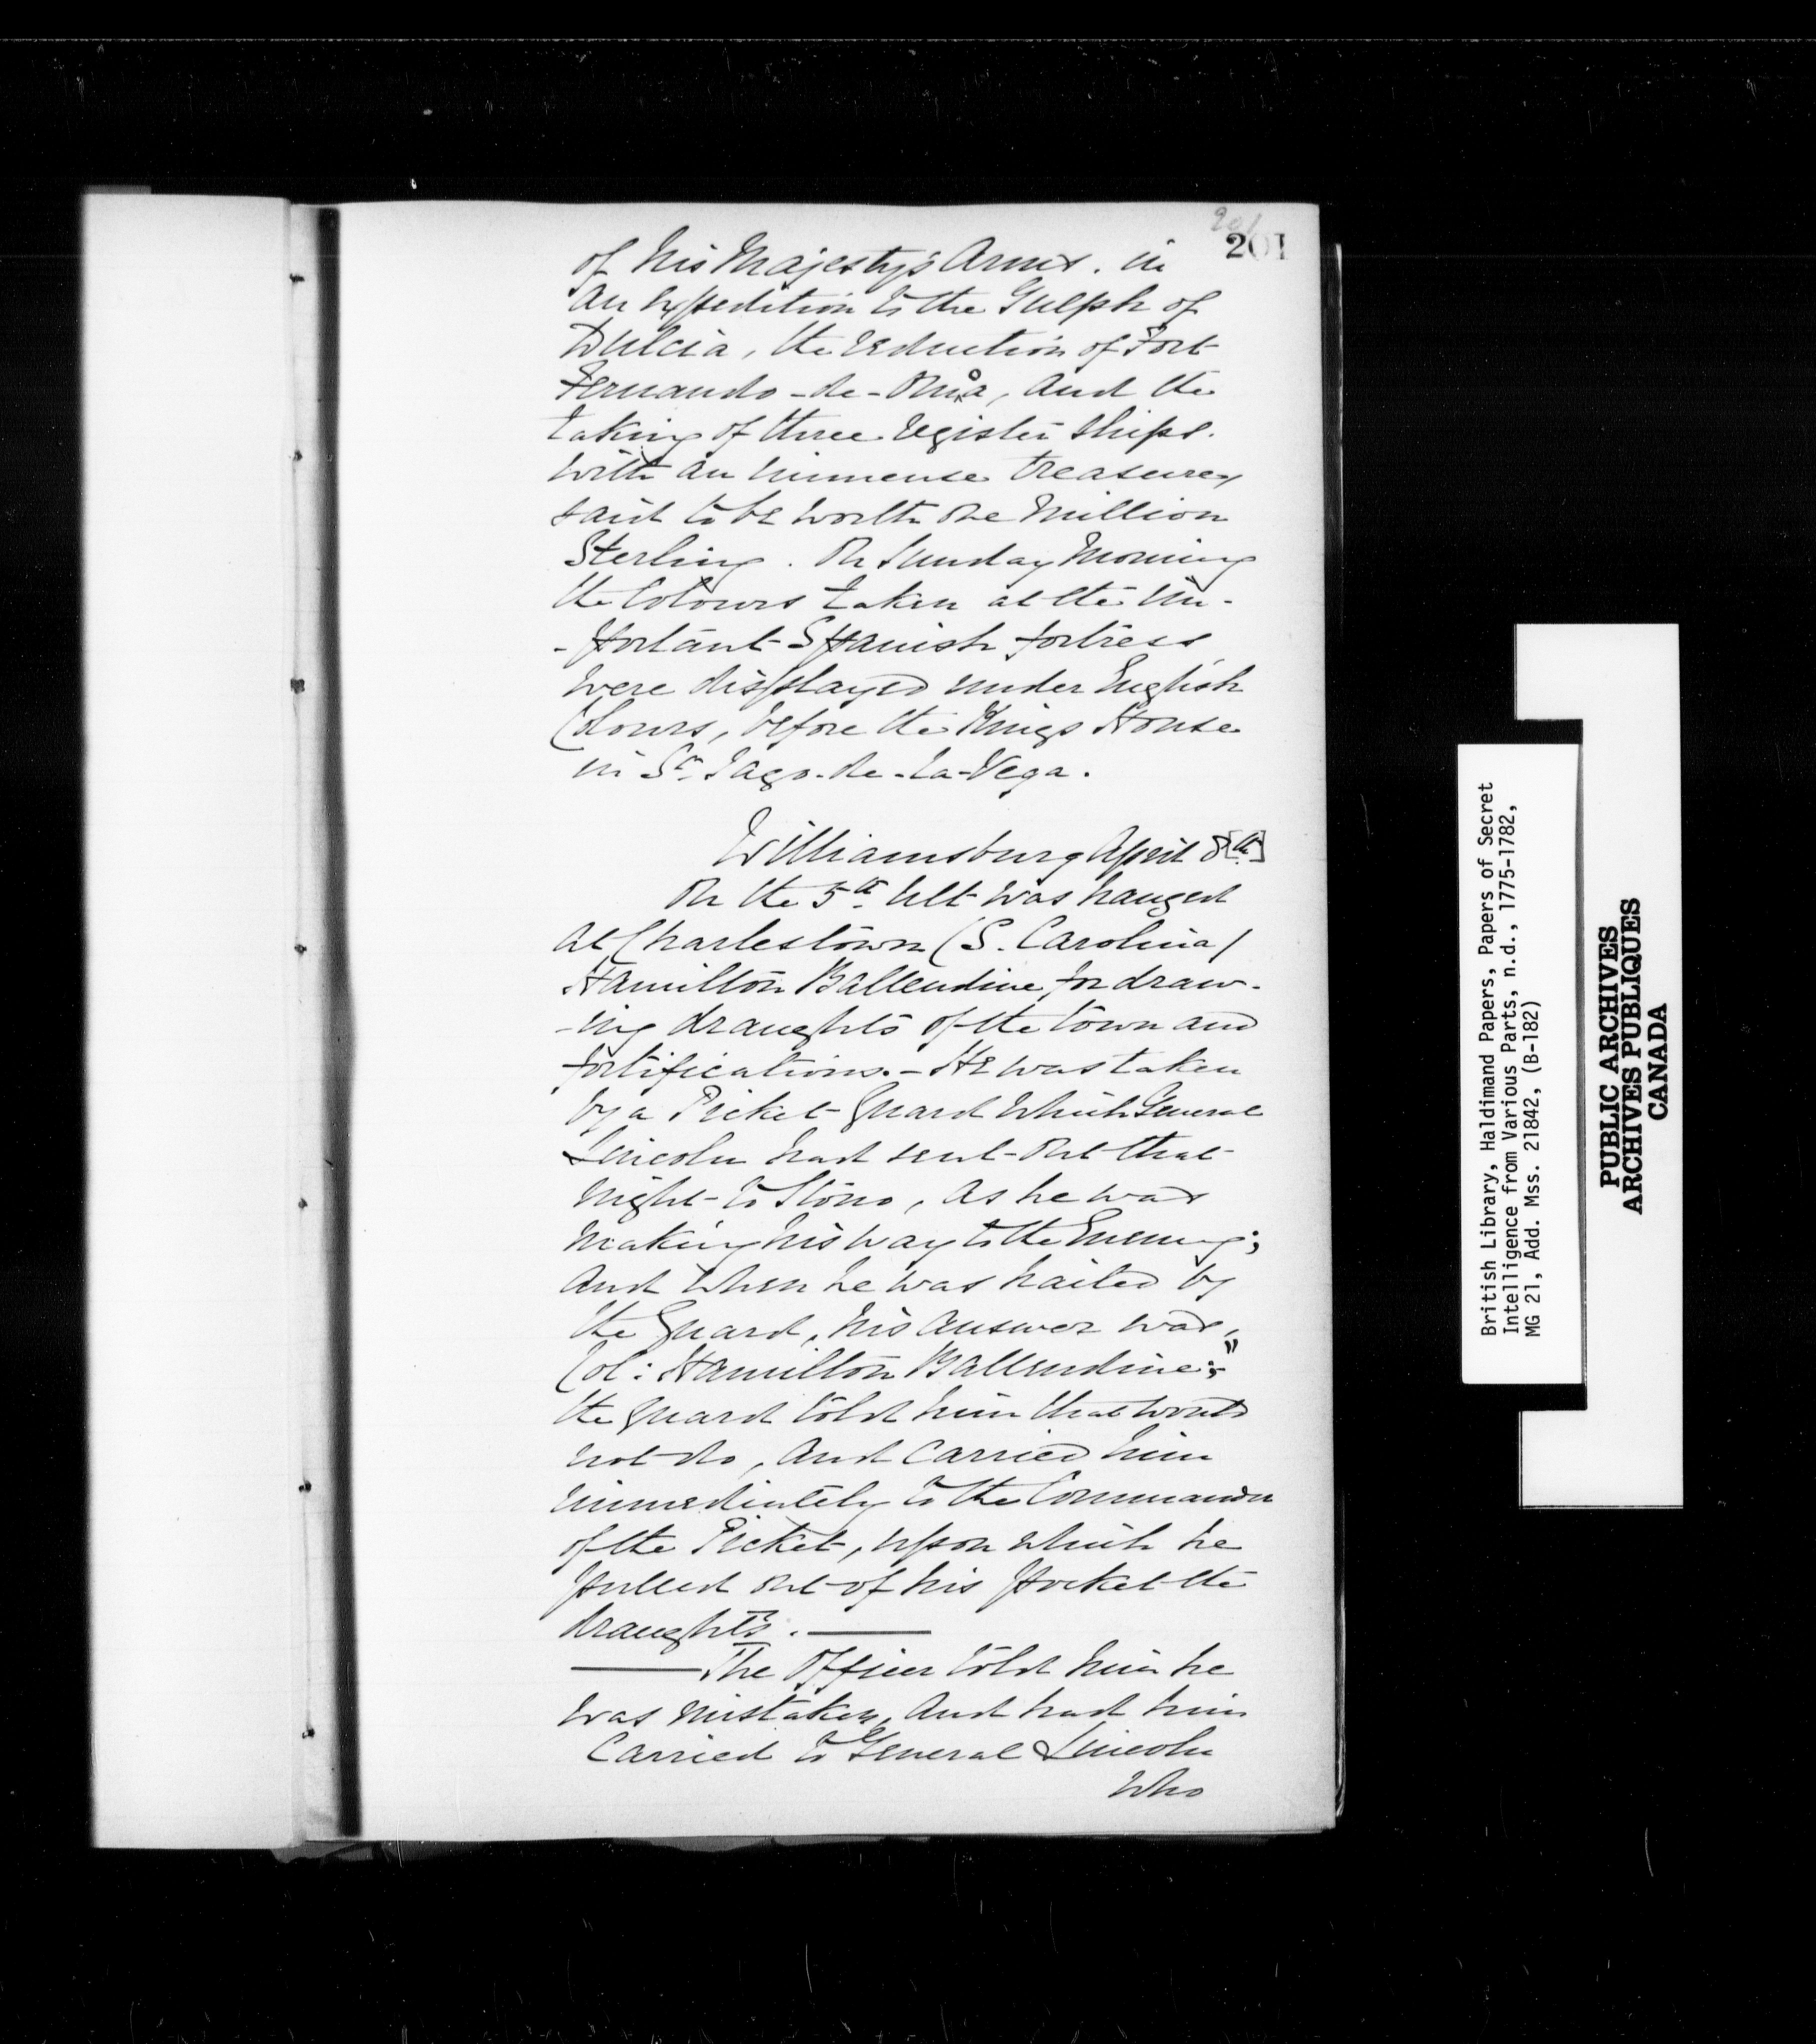 201
201
of his Majesty's Arms. in
an expedition to the Gulph of
Dulcia, the reduction of Fort
Fernando-de-Omoa, and the
taking of three register ships.
with an immense treasure,
said to be worth one Million
Sterling. On Sunday Morning
the Colours taken at the im-
-portant Spanish fortress
were displayed under English
Colours, before the Kings House
in St. Iago-de-la-Vega.
Williamsburg April 8[th]
On the 5th. ult was hanged
at Charlestown (S. Carolina)
Hamilton Ballendine, for draw-
-ing draughts of the town and
fortifications. - He was taken
by a Picket Guard which General
Lincoln had sent out that
night to Stono, as he was
making his way to the Enemy;
And when he was hailed by
the Guard, his answer was,
Col: Hamilton Ballendine;"
the guard told him that would
not do, and carried him
immediately to the Commander
of the Picket, upon which he
pulled out of his pocket the
draughts. ———
——— The Officer told him he
was mistaken, and had him
Carried to General Lincoln
Who
British Library, Haldimand Papers, Papers of Secret
Intelligence from Various Parts, n.d., 1775-1782,
MG 21, Add. Mss. 21842, (B-182)
PUBLIC ARCHIVES
ARCHIVES PUBLIQUES
CANADA